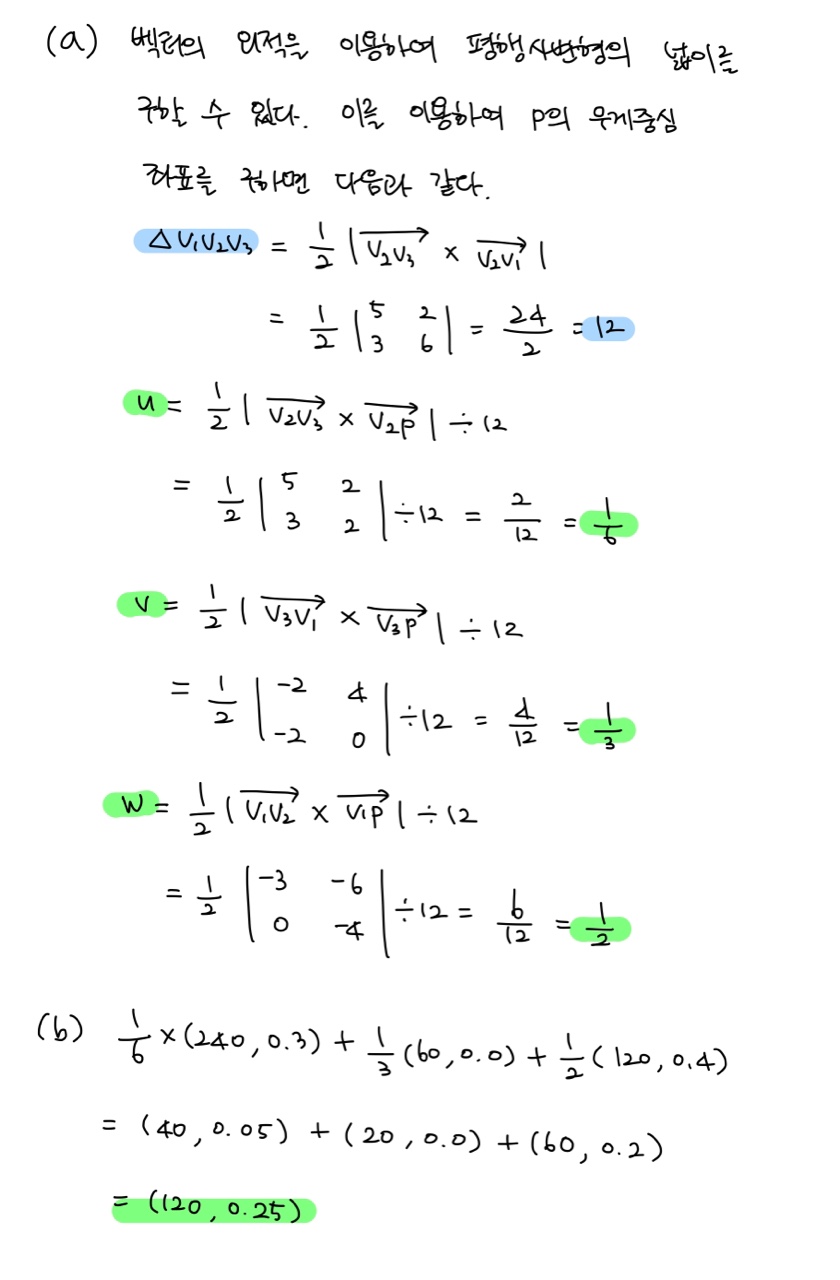 (a) 벡터의 외적을 이용하여 평행사변형의 넓이를
구할 수 있다. 이를 이용하여 P의 무게중심
좌표를 구하면 다음과 같다.
△V₁V₂V₃ = 1/2 |V₂V₃→ × V₂V₁→|
= 1/2 |5 2; 3 6| = 24/2 = 12
u = 1/2 |V₂V₃→ × V₂P→| ÷ 12
= 1/2 |5 2; 3 2| ÷ 12 = 2/12 = 1/6
v = 1/2 |V₃V₁→ × V₃P→| ÷ 12
= 1/2 |-2 4; -2 0| ÷ 12 = 4/12 = 1/3
w = 1/2 |V₁V₂→ × V₁P→| ÷ 12
= 1/2 |-3 -6; 0 -4| ÷ 12 = 6/12 = 1/2
(b) 1/6 × (240, 0.3) + 1/3 (60, 0.0) + 1/2 (120, 0.4)
= (40, 0.05) + (20, 0.0) + (60, 0.2)
= (120, 0.25)